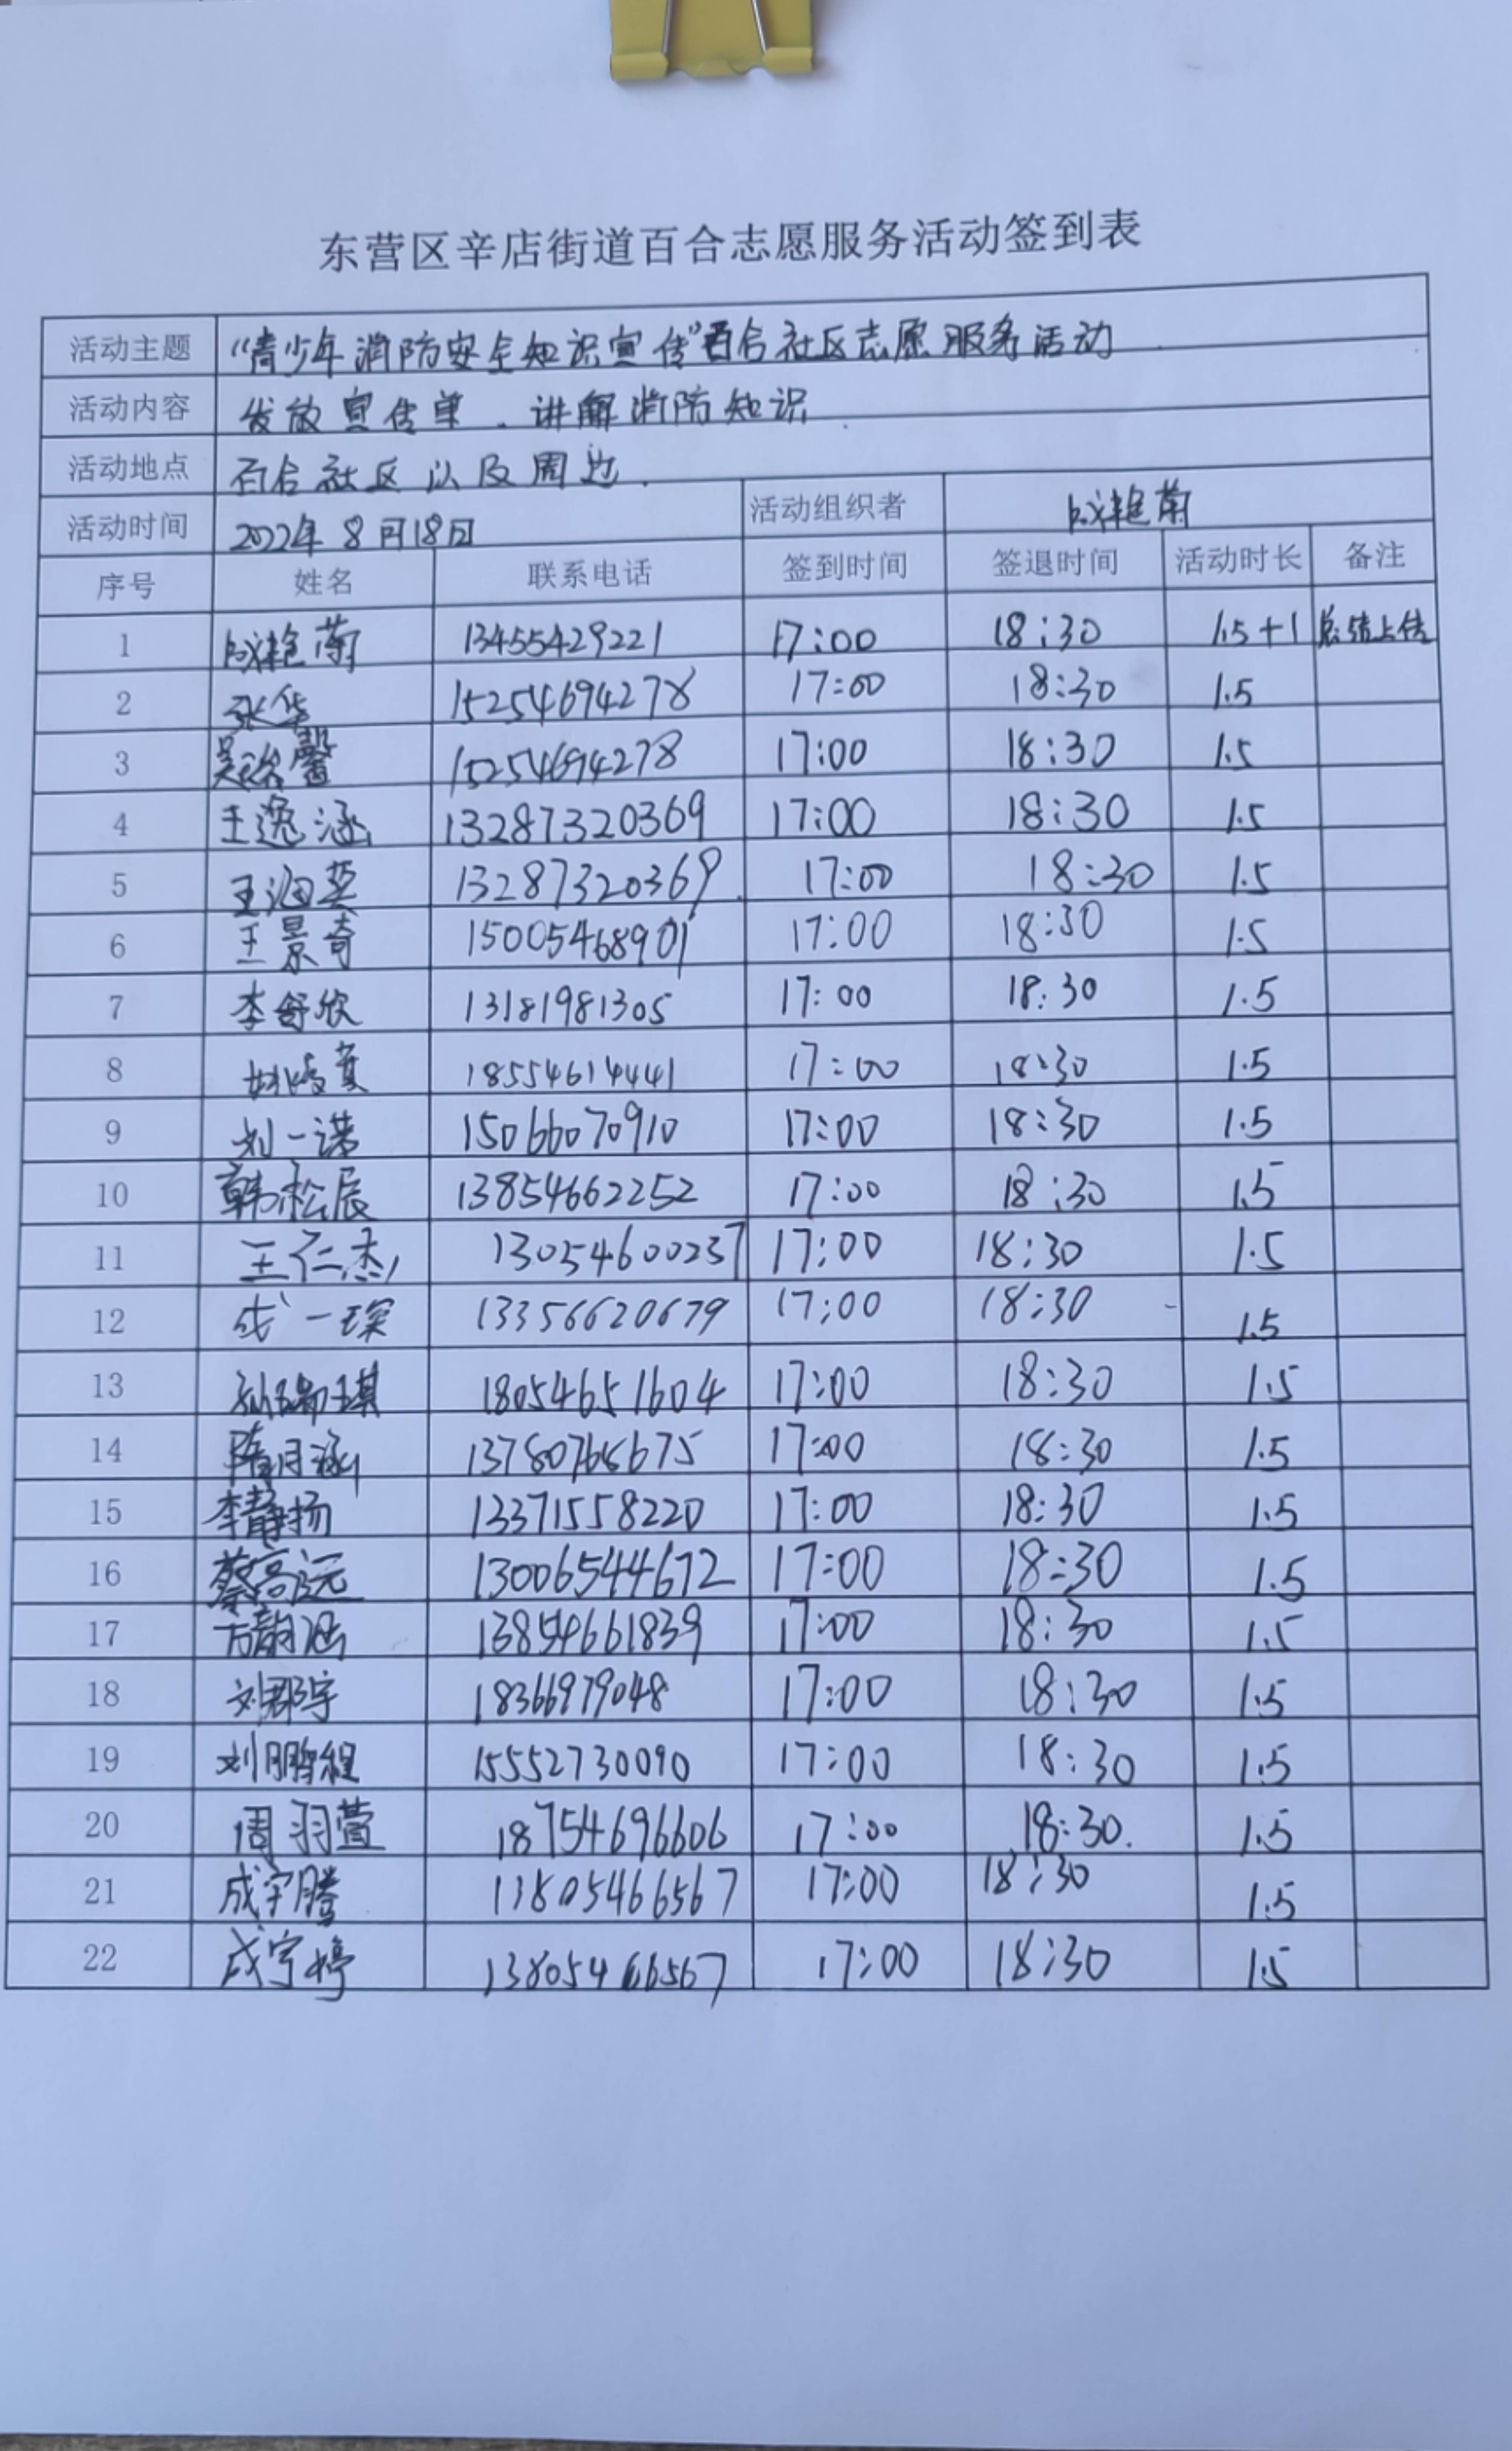 东营区辛店街道百合志愿服务活动签到表
活动主题 “青少年消防安全知识宣传”百合社区志愿服务活动
活动内容 发放宣传单.讲解消防知识
活动地点 百合社区以及周边.
活动时间 2022年8月18日 活动组织者 成艳菊
序号 姓名 联系电话 签到时间 签退时间 活动时长 备注
1 成艳菊 13455429221 17:00 18:30 1.5+1 总结上传
2 张华 15254694278 17:00 18:30 1.5
3 吴 馨 15254694278 17:00 18:30 1.5
4 王逸涵 13287320369 17:00 18:30 1.5
5 王海英 13287320369 17:00 18:30 1.5
6 王景奇 15005468901 17:00 18:30 1.5
7 李舒欣 13181981305 17:00 18:30 1.5
8 姚 18554614441 17:00 18:30 1.5
9 刘一诺 15066070910 17:00 18:30 1.5
10 韩松辰 13854662252 17:00 18:30 1.5
11 王仁杰 13054600237 17:00 18:30 1.5
12 成一琛 13356620679 17:00 18:30 1.5
13 孙瑞琪 18054651604 17:00 18:30 1.5
14 隋月涵 13780766675 17:00 18:30 1.5
15 李静扬 13371558220 17:00 18:30 1.5
16 蔡高远 13006544672 17:00 18:30 1.5
17 方韵涵 13854661839 17:00 18:30 1.5
18 刘郡宇 18366979048 17:00 18:30 1.5
19 刘鹏程 15552730090 17:00 18:30 1.5
20 周羽萱 18754696606 17:00 18:30. 1.5
21 成宇腾 13805466567 17:00 18:30 1.5
22 成宇婷 13805466567 17:00 18:30 1.5